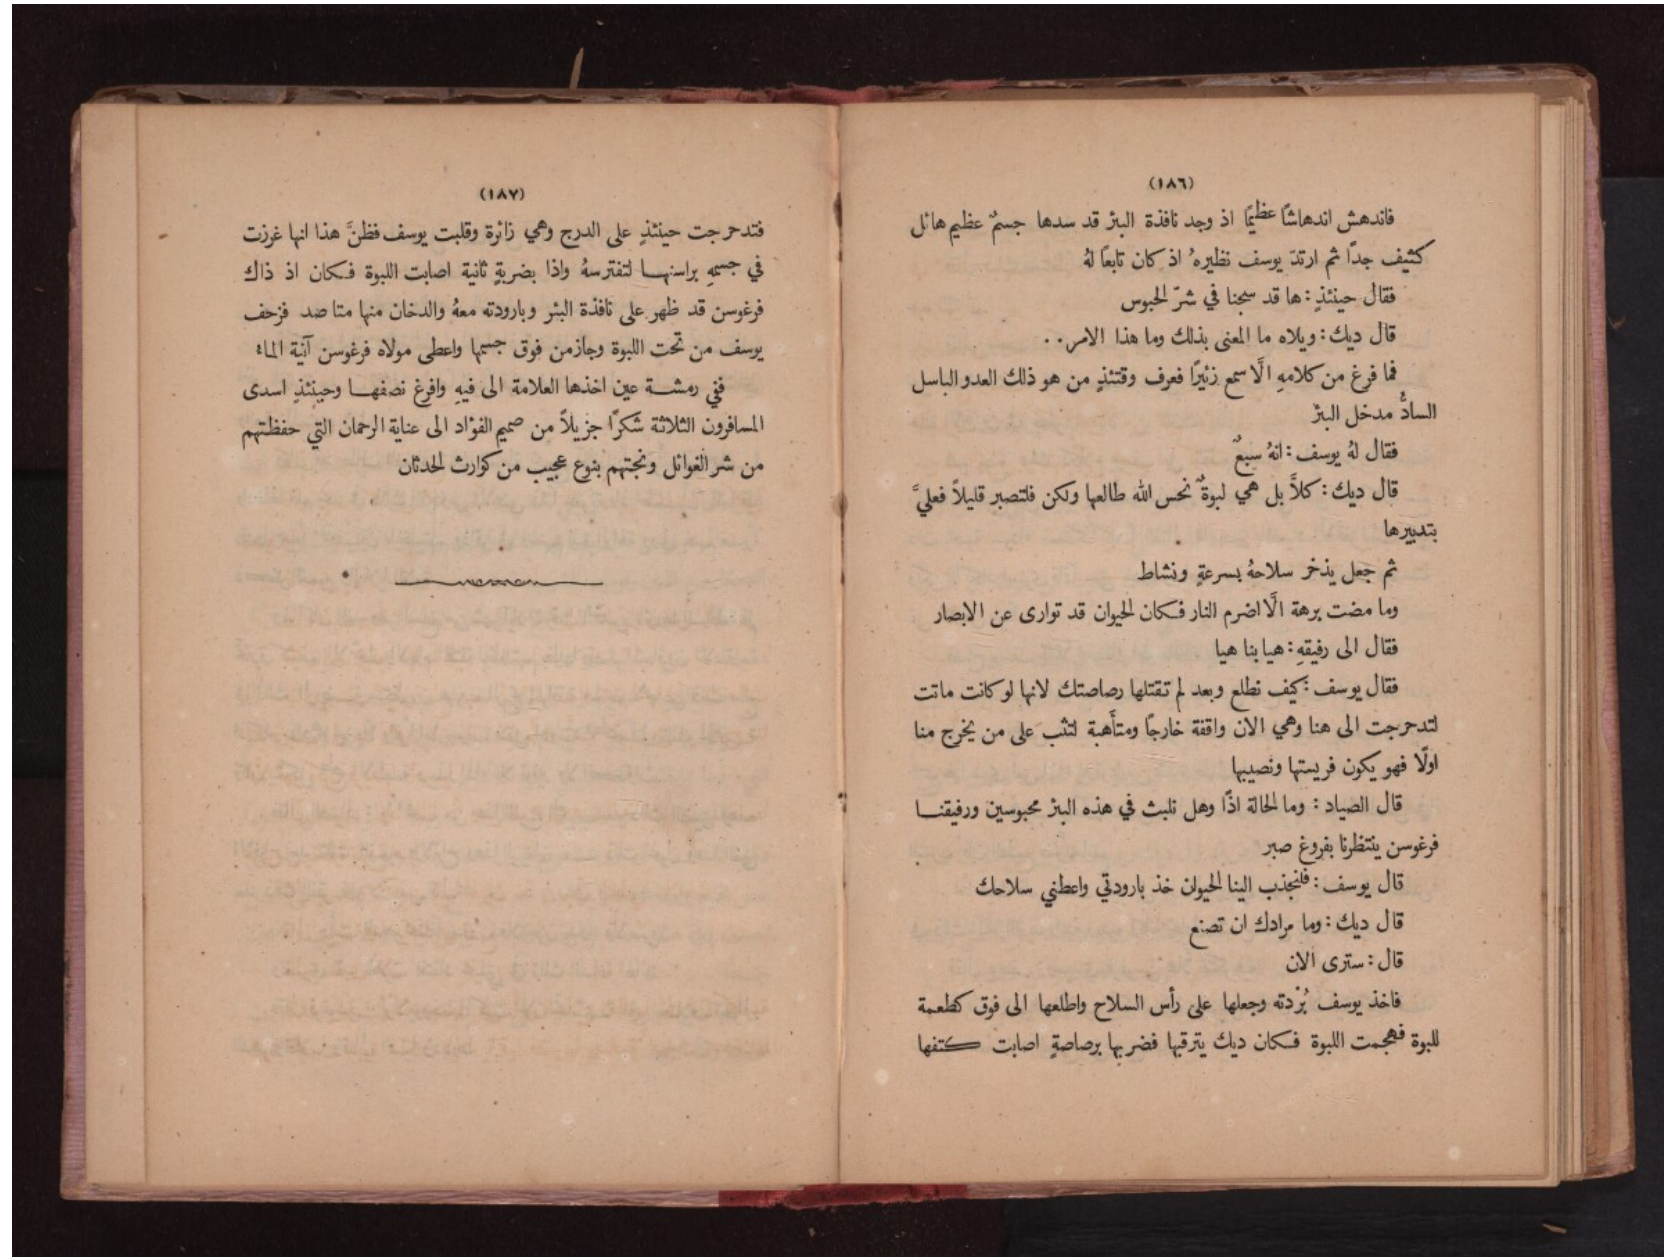 (١٨٦)
فاندهش اندهاشًا عظيمًا اذ وجد نافذة البئر قد سدها جسمٌ عظيم هائل
كثيف جدًا ثم ارتدّ يوسف نظيرهُ اذ كان تابعًا لهُ
فقال حينئذٍ : ها قد سجنا في شرّ الحبوس
قال ديك : ويلاه ما المعنى بذلك وما هذا الامر . .
فما فرغ من كلامهِ الَّا سمع زئيرًا فعرف وقتئذٍ من هو ذلك العدو الباسل
السادُّ مدخل البئر
فقال لهُ يوسف : انهُ سبعٌ
قال ديك : كلاَّ بل هي لبوةٌ نحس الله طالعها ولكن فلتصبر قليلاً فعليَّ
بتدبيرها
ثم جعل يذخر سلاحهُ بسرعةٍ ونشاط
وما مضت برهة الَّا اضرم النار فكان الحيوان قد توارى عن الابصار
فقال الى رفيقهِ : هيا بنا هيا
فقال يوسف : كيف نطلع وبعد لم تقتلها رصاصتك لانها لو كانت ماتت
لتدحرجت الى هنا وهي الان واقفة خارجًا ومتأهبة لتثب على من يخرج منا
اولًا فهو يكون فريستها ونصيبها
قال الصياد : وما الحالة اذًا وهل نلبث في هذه البئر محبوسين ورفيقنا
فرغوسن ينتظرنا بفروغ صبر
قال يوسف : فلنجذب الينا الحيوان خذ بارودتي واعطني سلاحك
قال ديك : وما مرادك ان تصنع
قال : سترى الان
فاخذ يوسف بُرْدته وجعلها على رأس السلاح واطلعها الى فوق كطعمة
للبوة فهجمت اللبوة فكان ديك يترقبها فضربها برصاصةٍ اصابت كتفها
(١٨٧)
فتدحرجت حينئذٍ على الدرج وهي زائرة وقلبت يوسف فظنَّ هذا انها غرزت
في جسمهِ براسنها لتفترسهُ واذا بضربةٍ ثانية اصابت اللبوة فكان اذ ذاك
فرغوسن قد ظهر على نافذة البئر وبارودته معهُ والدخان منها متاصد فزحف
يوسف من تحت اللبوة وجاز من فوق جسمها واعطى مولاه فرغوسن آنية الماء
ففي رمشة عين اخذها العلامة الى فيهِ وافرغ نصفها وحينئذٍ اسدى
المسافرون الثلاثة شكرًا جزيلاً من صميم الفؤاد الى عناية الرحمان التي حفظتهم
من شر الغوائل ونجتهم بنوع عجيب من كوارث الحدثان